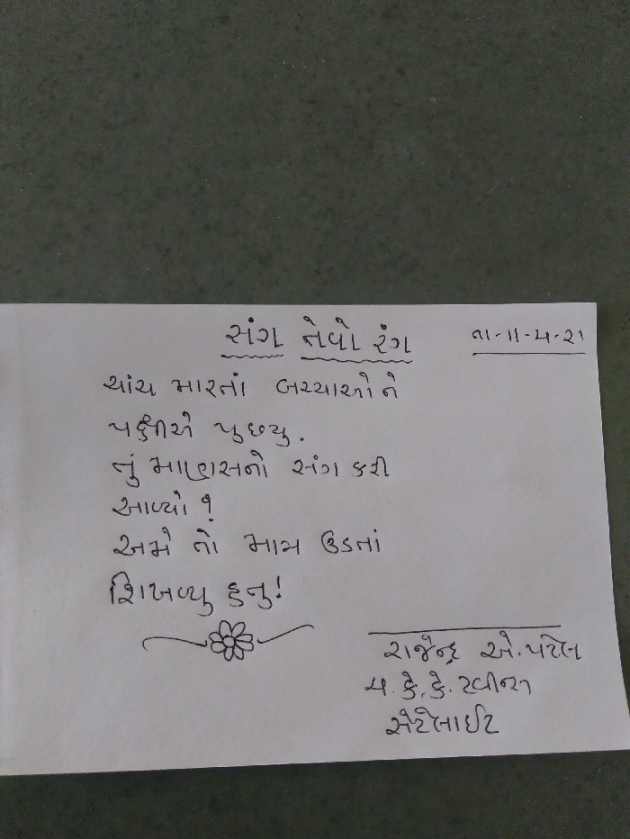 સંગ તેવો રંગ
તા-૧૧-૫-૨૧
ચાંચ મારતાં બચ્ચાઓને
પક્ષીએ પુછયુ.
તું માણસનો સંગ કરી
આવ્યો ?
અમે તો માત્ર ઉડતાં
શિખવ્યુ હતુ!
રાજેન્દ્ર એ. પટેલ
કે. કે.
સેટેલાઈટ